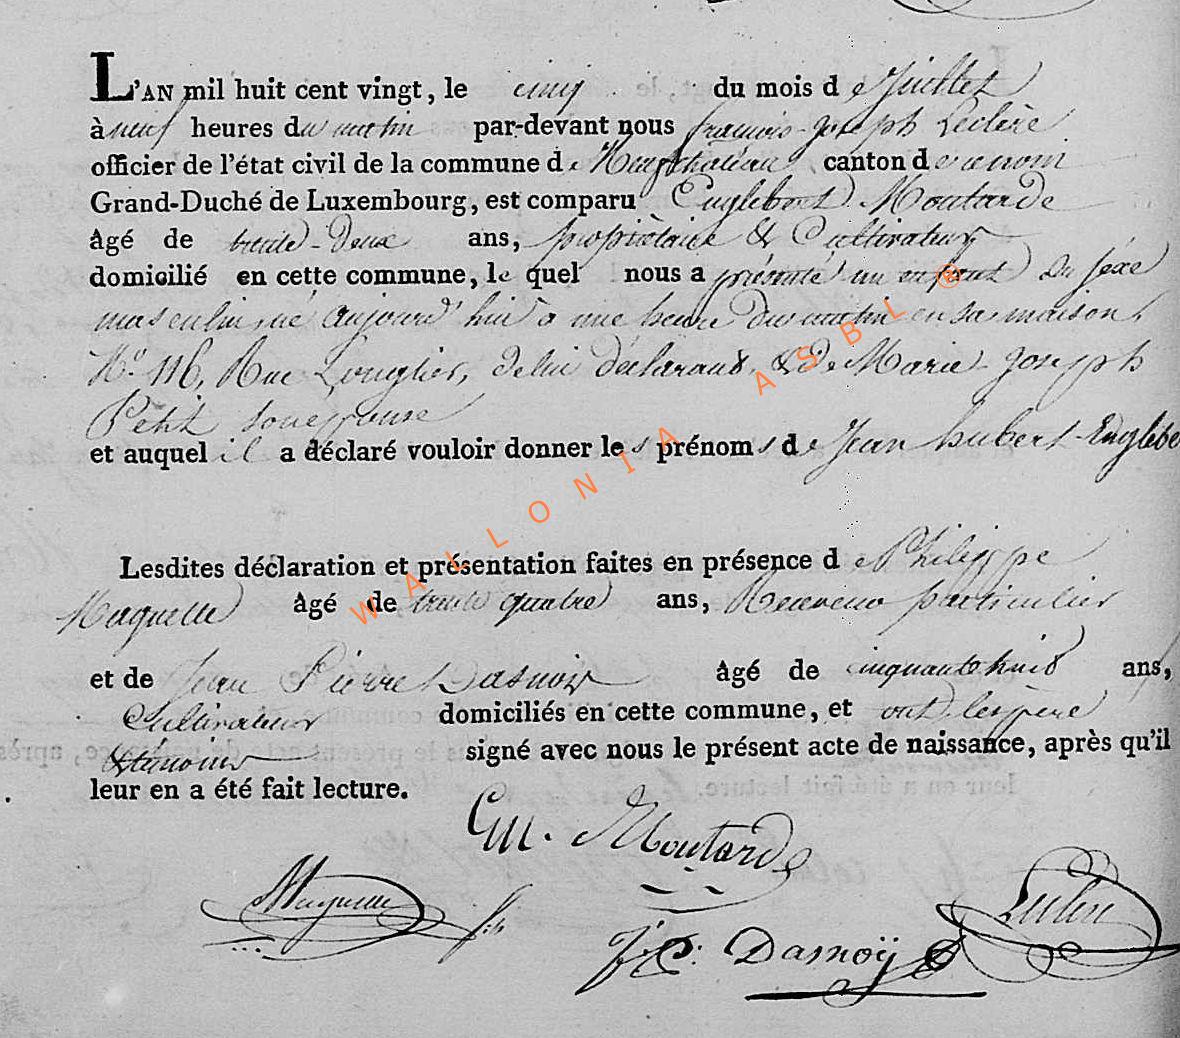 L'AN mil huit cent vingt, le cinq du mois de Juillet
à neuf heures du matin par-devant nous françois-joseph Leclère
officier de l'état civil de la commune de Neufchateau canton d
Grand-Duché de Luxembourg, est comparu Englebert Moutarde
âgé de trente-deux ans, propriétaire & Cultivateur
domicilié en cette commune, le quel nous a présenté un enfant du sexe
masculin, né aujourd'hui à une heure du matin en sa maison
N.º 116, Rue Longlier, de lui déclarant, & de Marie joseph
Petit son épouse
et auquel il a déclaré vouloir donner les prénoms de Jean hubert Englebe
Lesdites déclaration et présentation faites en présence de Philippe
Maquelle âgé de trente quatre ans, Receveur particulier
et de Jean Pierre Dasnoy âgé de cinquante huit ans,
Cultivateur domiciliés en cette commune, et ont les père
& témoins signé avec nous le présent acte de naissance, après qu'il
leur en a été fait lecture.
Moutarde
Maquelle fils Leclère
Dasnoÿ
WALLONIA ASBL ®